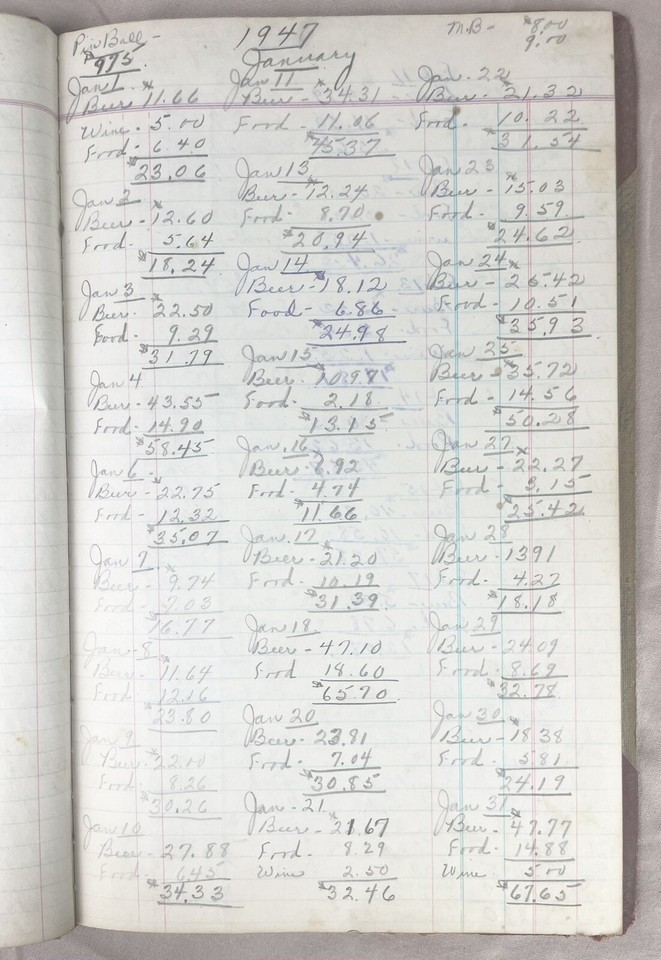 1947
January
Pin Ball -
$ 9.75
M.B - $8.00
9.00
Jan 1
Beer 11.66
Wine - 5.00
Food - 6.40
$23.06
Jan 2
Beer - 12.60
Food - 5.64
$18.24
Jan 3
Beer - 22.50
Food - 9.29
$31.79
Jan 4
Beer - 43.55
Food - 14.90
$58.45
Jan 6 -
Beer - 22.75
Food - 12.32
35.07
Jan 7
Beer - 9.74
Food - 7.03
16.77
Jan - 8
Beer - 11.64
Food - 12.16
23.80
Jan 9
Beer - 22.00
Food - 8.26
$30.26
Jan 10
Beer - 27.88
Food - 6.45
$34.33
Jan 11
Beer - $34.31
Food - 11.06
$45.37
Jan 13
Beer - 12.24
Food - 8.70
$20.94
Jan 14
Beer - $18.12
Food - 6.86
$24.98
Jan 15
Beer - 10.97
Food - 2.18
$13.15
Jan. 16
Beer - 6.92
Food - 4.74
$11.66
Jan. 17
Beer - 21.20
Food - 10.19
$31.39
Jan 18
Beer - 47.10
Food 18.60
$65.70
Jan 20
Beer - 23.81
Food - 7.04
$30.85
Jan - 21
Beer - 21.67
Food - 8.29
Wine 2.50
$32.46
Jan - 22
Beer - 21.32
Food - 10.22
$31.54
Jan 23
Beer - 15.03
Food - 9.59
$24.62
Jan 24
Beer - 25.42
Food - 10.51
$35.93
Jan 25
Beer - $35.72
Food - 14.56
$50.28
Jan 27
Beer - 22.27
Food - 3.15
$25.42
Jan 28
Beer - 1391
Food - 4.27
$18.18
Jan 29
Beer - 24.09
Food - 8.69
$32.78
Jan 30
Beer - 18.38
Food - 5.81
$24.19
Jan 31
Beer - 47.77
Food - 14.88
Wine 5.00
$67.65